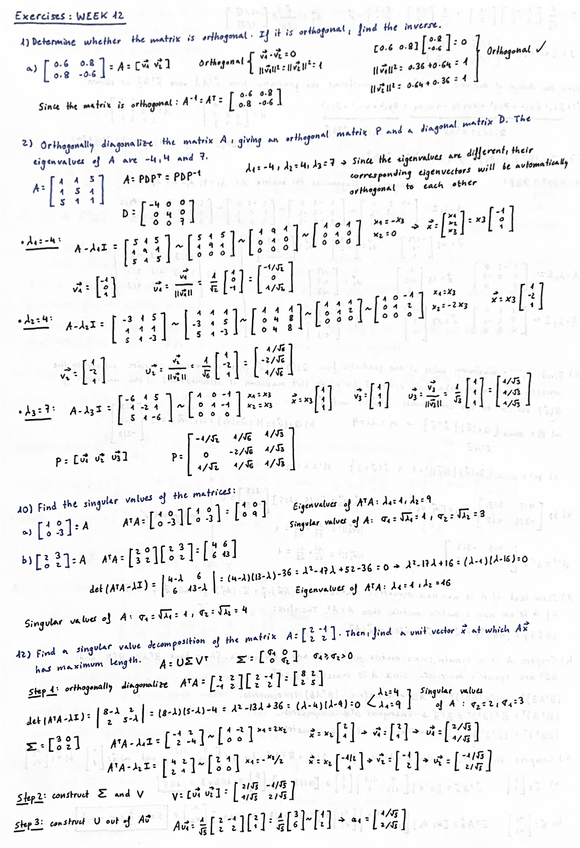 Exercises: WEEK 12
1) Determine whether the matrix is orthogonal. If it is orthogonal, find the inverse.
a) [0.6 0.8; 0.8 -0.6] = A = [v₁ v₂] Orthogonal { v₁·v₂ = 0; ||v₁||² = ||v₂||² = 1 [0.6 0.8][0.8; -0.6] = 0; ||v₁||² = 0.36+0.64 = 1; ||v₂||² = 0.64+0.36 = 1 } Orthogonal ✓
Since the matrix is orthogonal: A⁻¹ = Aᵀ = [0.6 0.8; 0.8 -0.6]
2) Orthogonally diagonalize the matrix A, giving an orthogonal matrix P and a diagonal matrix D. The
eigenvalues of A are -4, 4 and 7.
A = [1 1 5; 1 5 1; 5 1 1] A = PDPᵀ = PDP⁻¹ λ₁=-4, λ₂=4, λ₃=7 → Since the eigenvalues are different, their
corresponding eigenvectors will be automatically
orthogonal to each other
D = [-4 0 0; 0 4 0; 0 0 7]
• λ₁=-4: A-λ₁I = [5 1 5; 1 9 1; 5 1 5] ~ [5 1 5; 1 9 1; 0 0 0] ~ [1 9 1; 0 1 0; 0 0 0] ~ [1 0 1; 0 1 0; 0 0 0] x₁=-x₃ x₂=0 → x = [x₁; x₂; x₃] = x₃ [-1; 0; 1]
v₁ = [-1; 0; 1] u₁ = v₁/||v₁|| = 1/√2 [-1; 0; 1] = [-1/√2; 0; 1/√2]
• λ₂=4: A-λ₂I = [-3 1 5; 1 1 1; 5 1 -3] ~ [1 1 1; -3 1 5; 5 1 -3] ~ [1 1 1; 0 4 8; 0 4 8] ~ [1 1 1; 0 1 2; 0 0 0] ~ [1 0 -1; 0 1 2; 0 0 0] x₁=x₃ x₂=-2x₃ x = x₃ [1; -2; 1]
v₂ = [1; -2; 1] u₂ = v₂/||v₂|| = 1/√6 [1; -2; 1] = [1/√6; -2/√6; 1/√6]
• λ₃=7: A-λ₃I = [-6 1 5; 1 -2 1; 5 1 -6] ~ [1 0 -1; 0 1 -1; 0 0 0] x₁=x₃ x₂=x₃ x = x₃ [1; 1; 1] v₃ = [1; 1; 1] u₃ = v₃/||v₃|| = 1/√3 [1; 1; 1] = [1/√3; 1/√3; 1/√3]
P = [u₁ u₂ u₃] P = [-1/√2 1/√6 1/√3; 0 -2/√6 1/√3; 1/√2 1/√6 1/√3]
10) Find the singular values of the matrices:
a) [1 0; 0 -3] = A AᵀA = [1 0; 0 -3][1 0; 0 -3] = [1 0; 0 9] Eigenvalues of AᵀA: λ₁=1, λ₂=9
Singular values of A: σ₁=√λ₁=1, σ₂=√λ₂=3
b) [2 3; 0 2] = A AᵀA = [2 0; 3 2][2 3; 0 2] = [4 6; 6 13]
det(AᵀA-λI) = |4-λ 6; 6 13-λ| = (4-λ)(13-λ)-36 = λ²-17λ+52-36 = 0 → λ²-17λ+16 = (λ-1)(λ-16)=0
Eigenvalues of AᵀA: λ₁=1, λ₂=16
Singular values of A: σ₁=√λ₁=1, σ₂=√λ₂=4
12) Find a singular value decomposition of the matrix A = [2 -1; 2 2]. Then, find a unit vector x at which Ax
has maximum length. A = UΣVᵀ Σ = [σ₁ 0; 0 σ₂] σ₁≥σ₂>0
Step 1: orthogonally diagonalize AᵀA = [2 2; -1 2][2 -1; 2 2] = [8 2; 2 5]
det(AᵀA-λI) = |8-λ 2; 2 5-λ| = (8-λ)(5-λ)-4 = λ²-13λ+36 = (λ-4)(λ-9)=0 < λ₂=4 λ₁=9 ] Singular values
of A: σ₂=2, σ₁=3
Σ = [3 0; 0 2] AᵀA-λ₁I = [-1 2; 2 -4] ~ [1 -2; 0 0] x₁=2x₂ x = x₂ [2; 1] → v₁ = [2; 1] → u₁ = [2/√5; 1/√5]
AᵀA-λ₂I = [4 2; 2 1] ~ [2 1; 0 0] x₁=-x₂/2 x = x₂ [-1/2; 1] → v₂ = [-1; 2] → u₂ = [-1/√5; 2/√5]
Step 2: construct Σ and V V = [u₁ u₂] = [2/√5 -1/√5; 1/√5 2/√5]
Step 3: construct U out of Au Au₁ = 1/√5 [2 -1; 2 2][2; 1] = 1/√5 [3; 6] ~ [1; 2] → a₁ = [1/√5; 2/√5]